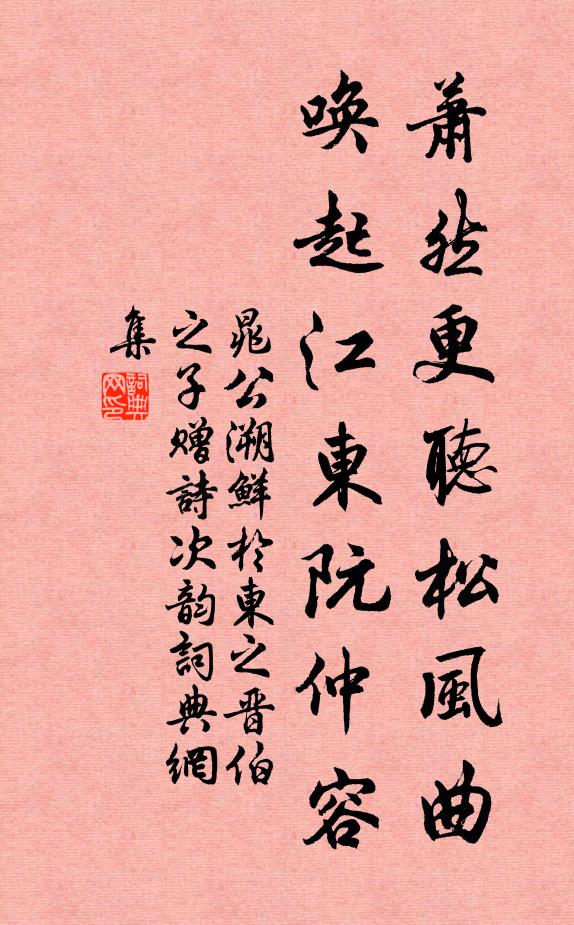 蕭然更聽松風曲
喚起江東阮仲容
晁公溯鮮於東之晋伯
之子贈詩次韵詞典網
集
詞典
网印